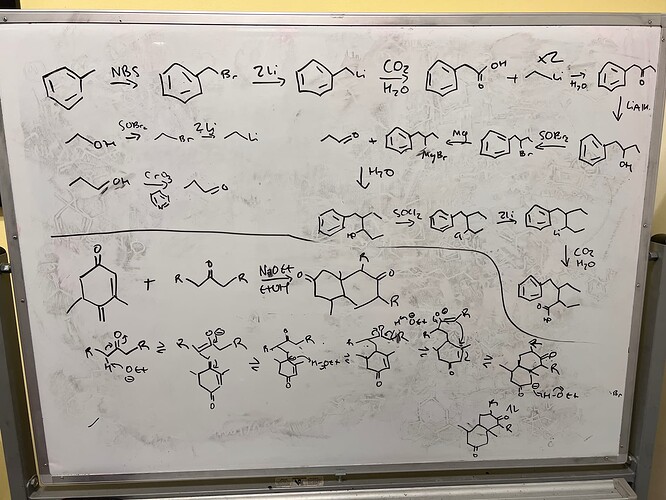 NBS Br 2Li Li CO₂ H₂O O OH + x2 Li H₂O O
OH SOBr₂ Br 2Li Li
LiAlH₄
O + MgBr Mg Br SOBr₂ OH
OH CrO₃ N O
H₂O
HO SOCl₂ Cl 2Li Li
CO₂ H₂O
O HO
O O + R O R NaOEt EtOH O R O R
R O R H ⊖OEt ⇌ O⊖ R O ⇌ O R H-OEt ⇌ O R O ⇌ H OEt O⊖ R O ⇌ R O R O⊖ H-OEt
Br
1L
R O R O